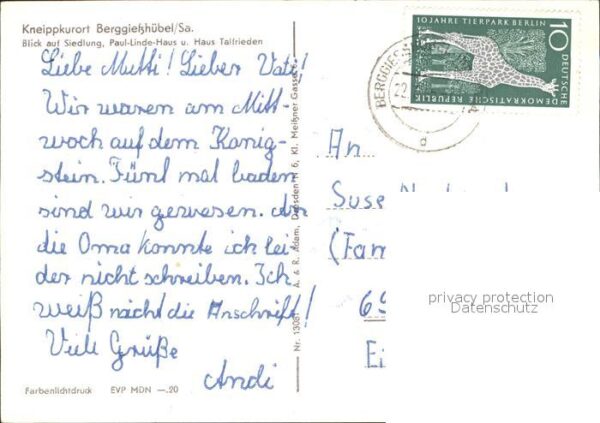 Kneippkurort Berggießhübel/Sa.
Blick auf Siedlung, Paul-Linde-Haus u. Haus Talfrieden
Liebe Mutti! Lieber Vati!
Wir waren am Mitt-
woch auf dem Königs-
stein. Fünf mal baden
sind wir gewesen. An
die Oma konnte ich lei-
der nicht schreiben. Ich
weiß nicht die Anschrift!
Viele Grüße
Andi
Farbenlichtdruck EVP MDN —.20
Nr. 13081 A. & R. Adam, Dresden N 6, Kl. Meißner Gasse
BERGGIESSHÜ
22
d
10 JAHRE TIERPARK BERLIN
10
DEUTSCHE
DEMOKRATISCHE REPUBLIK
An
Suse
(Fam
69
Ei
privacy protection
Datenschutz